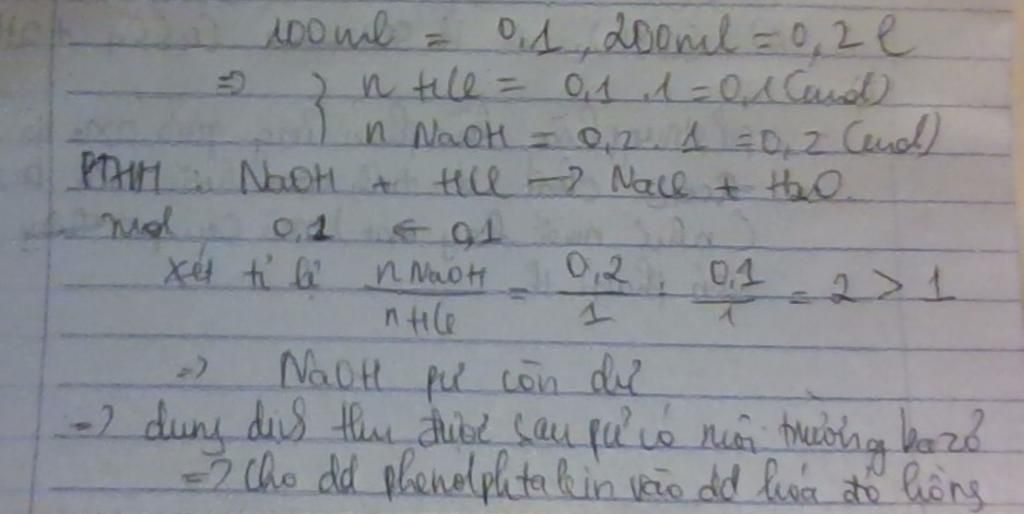 100ml = 0,1, 200ml = 0,2 l
=> } n HCl = 0,1 . 1 = 0,1 (mol)
n NaOH = 0,2 . 1 = 0,2 (mol)
PTHH : NaOH + HCl -> NaCl + H2O
mol 0,1 ← 0,1
Xét tỉ lệ nNaOH / nHCl = 0,2/1 : 0,1/1 = 2 > 1
=> NaOH pư còn dư
=> dung dịch thu được sau pư có môi trường bazơ
=> Cho dd phenolphtalein vào dd hoá đỏ hồng